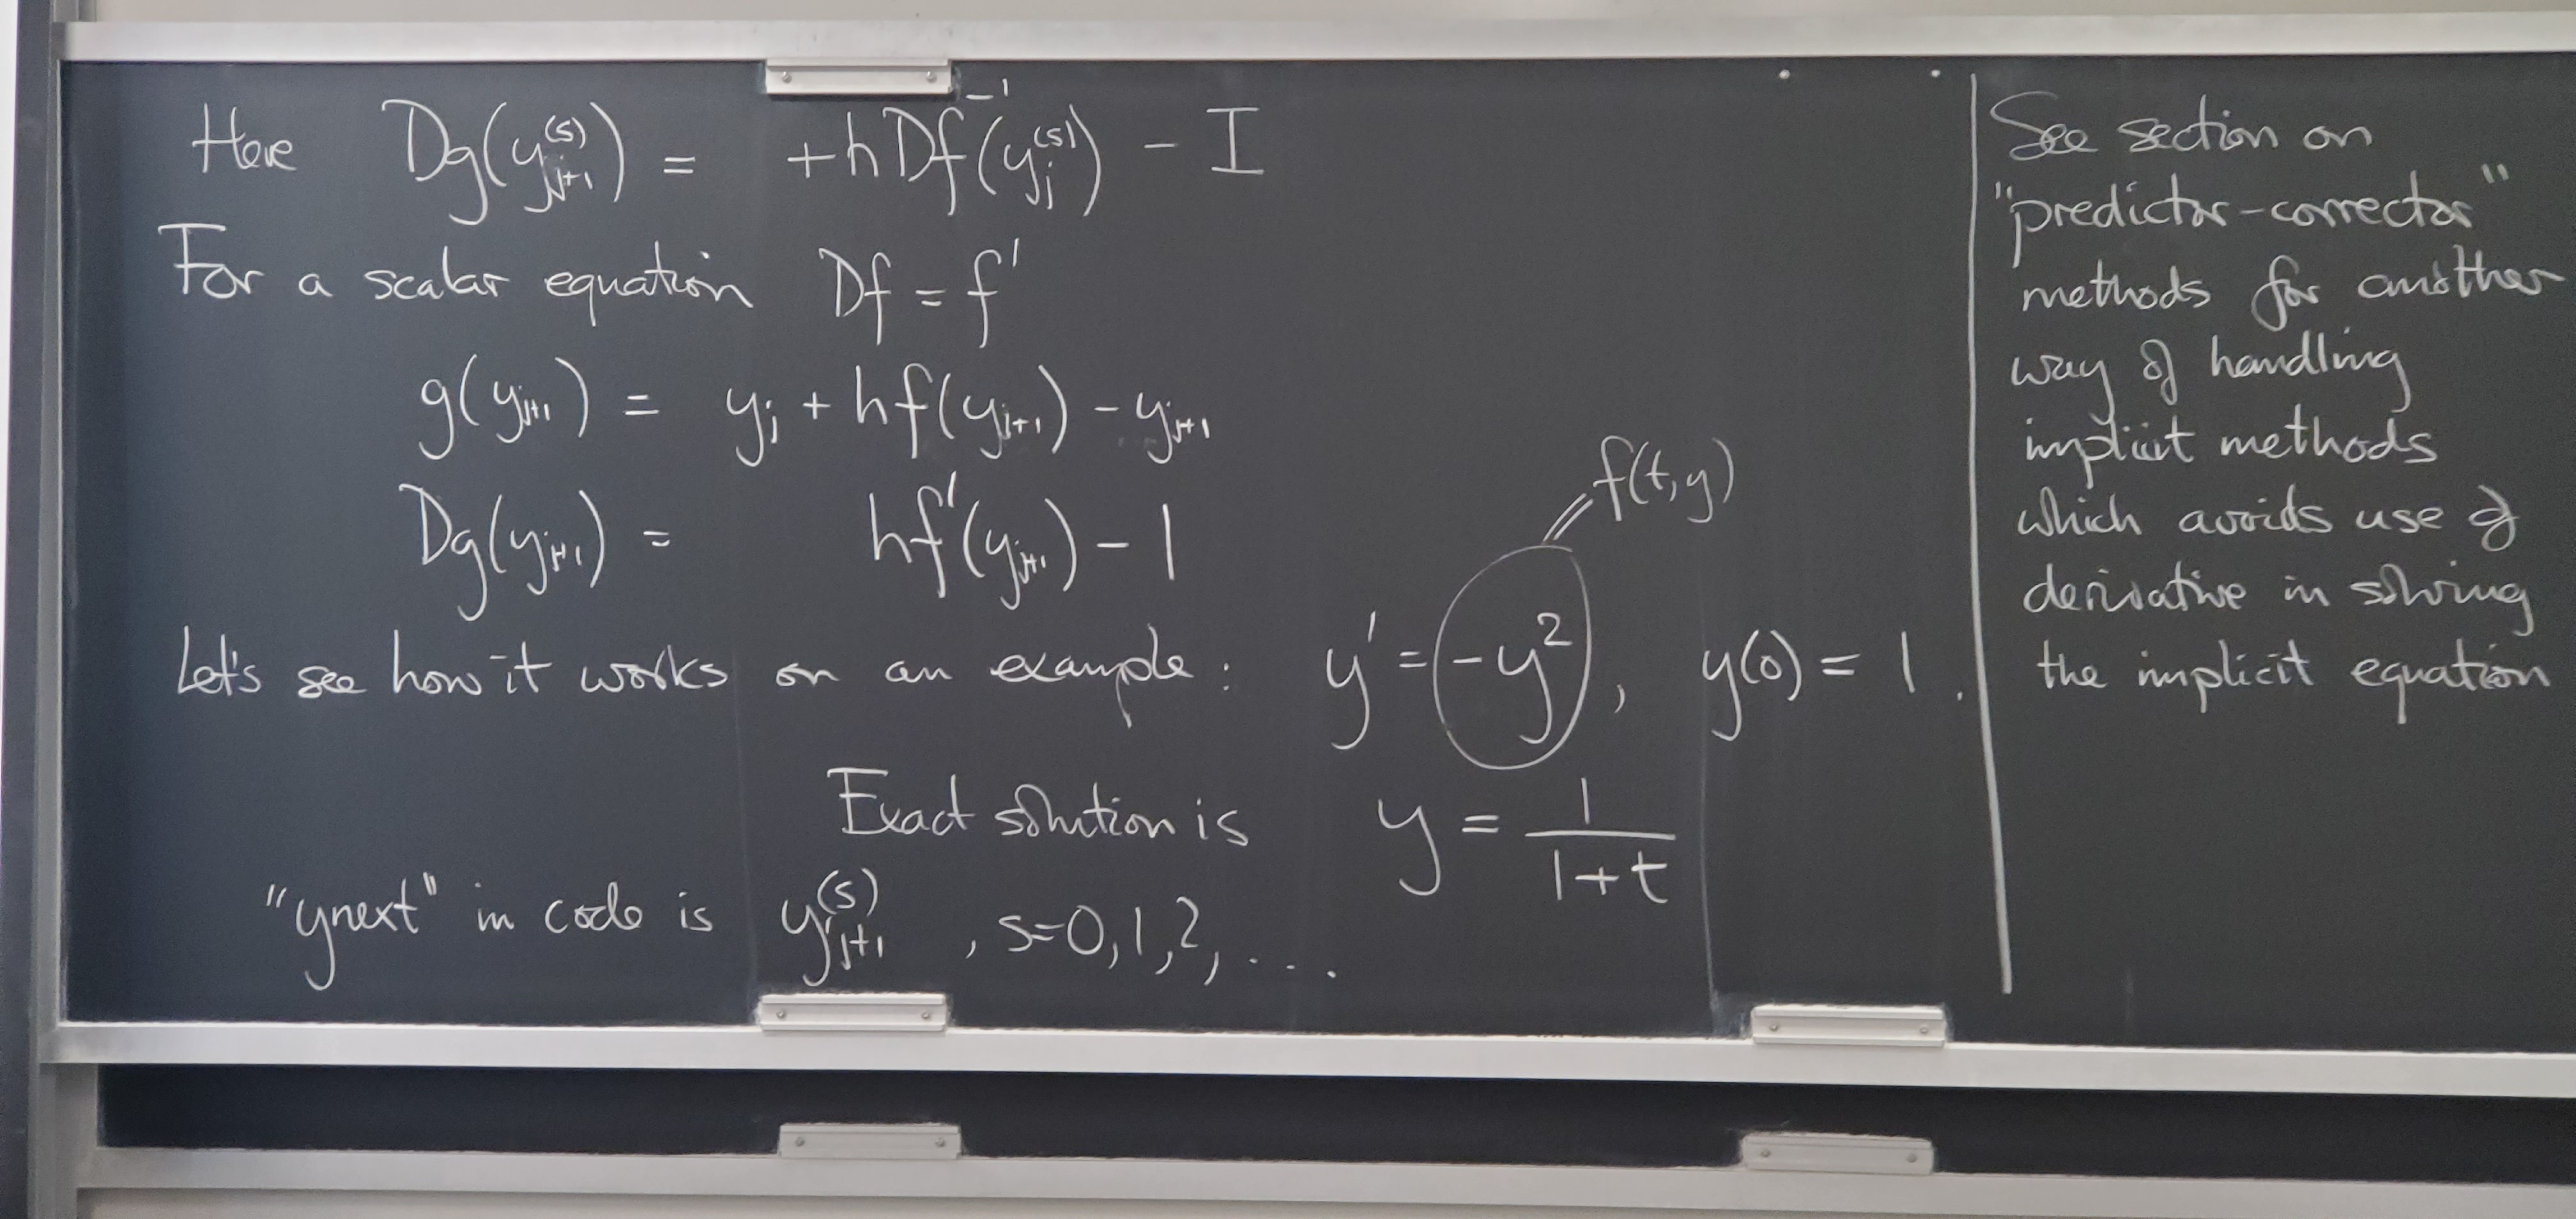 Here Dg(y_{j+1}^{(s)}) = +hDf^{-1}(y_j^{(s)}) - I
For a scalar equation Df = f'
g(y_{j+1}) = y_j + hf(y_{j+1}) - y_{j+1}
Dg(y_{j+1}) = hf'(y_{j+1}) - 1
f(t,y)
Let's see how it works on an example: y' = -y^2, y(0) = 1.
Exact solution is y = \frac{1}{1+t}
"ynext" in code is y_{j+1}^{(s)}, s=0,1,2,....
See section on
"predictor-corrector"
methods for another
way of handling
implicit methods
which avoids use of
derivative in solving
the implicit equation